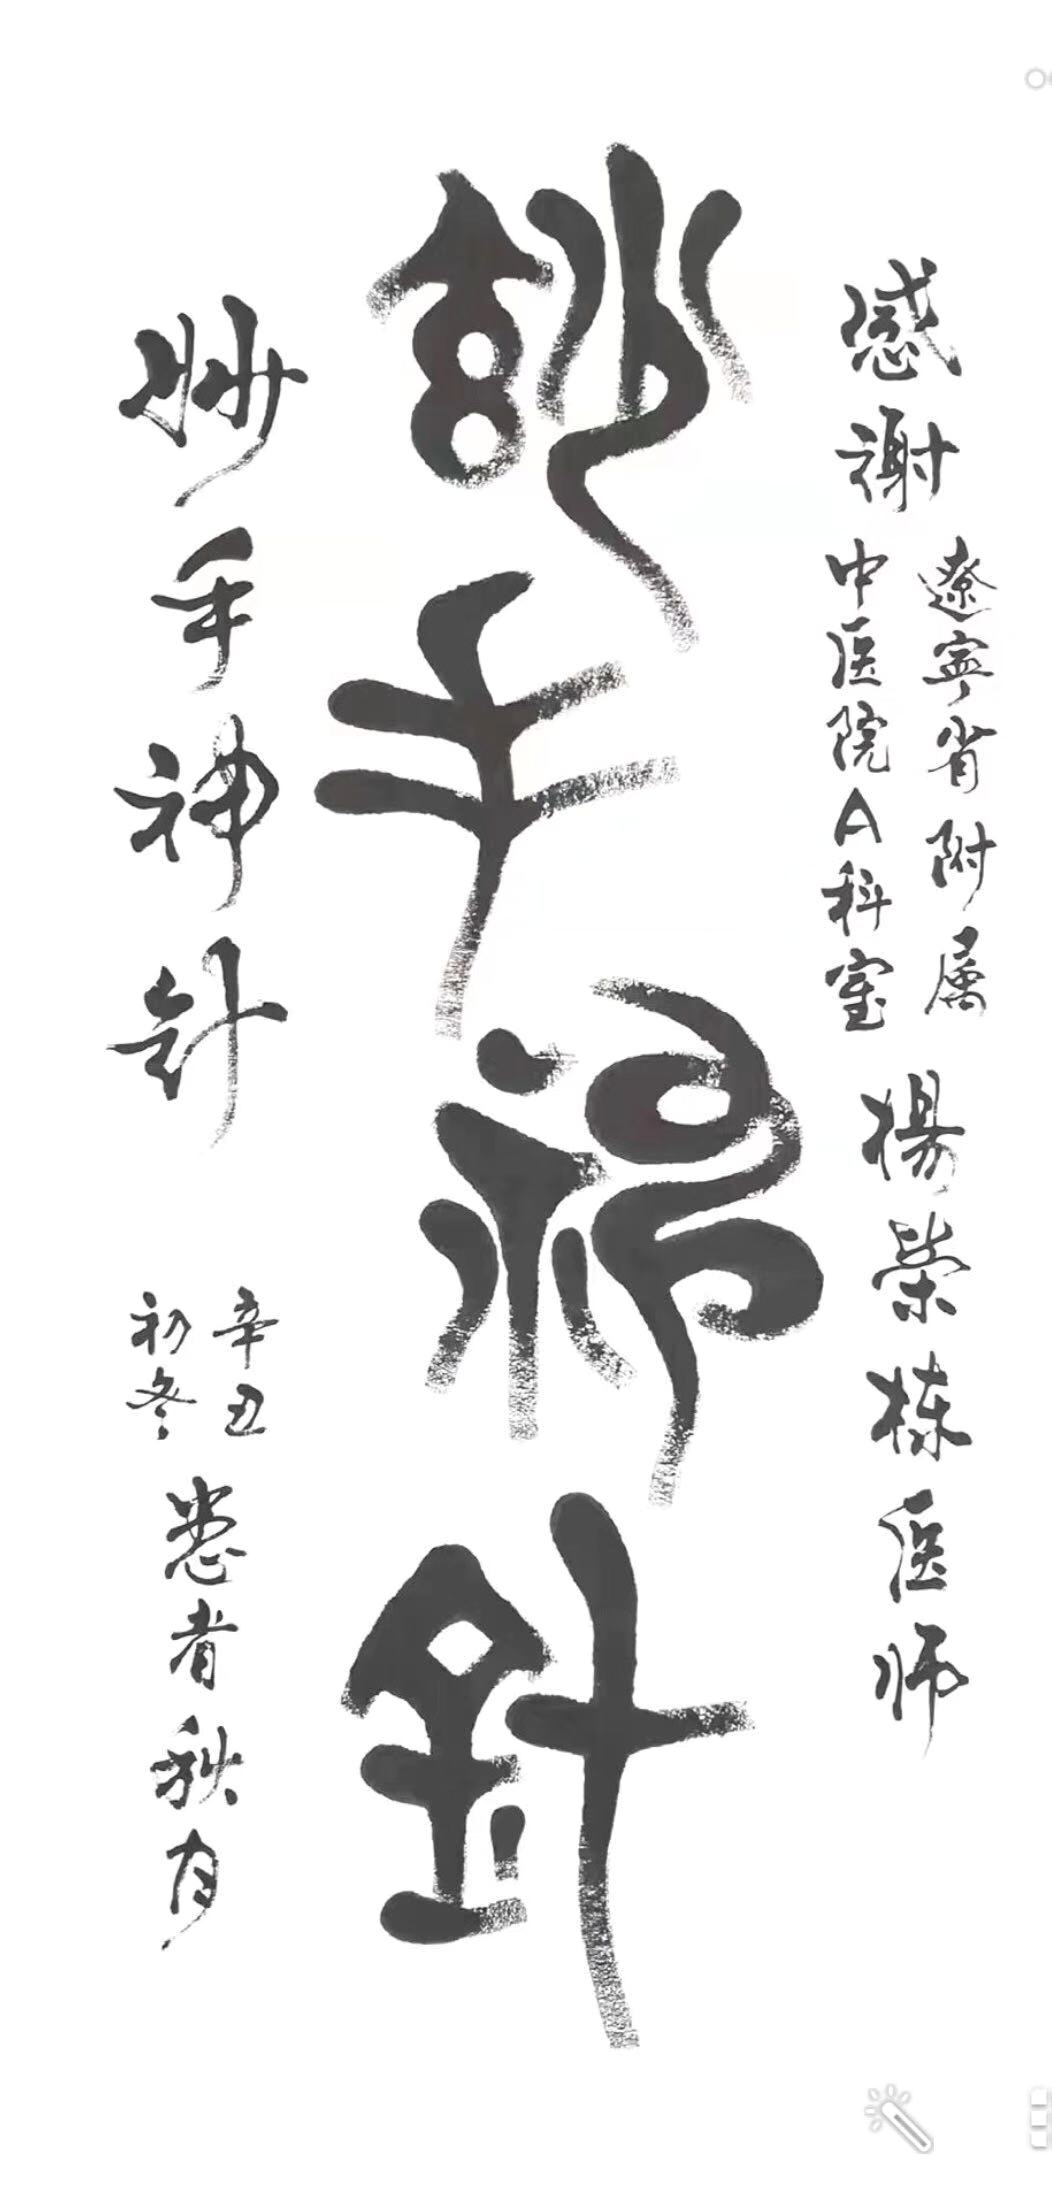 感谢
辽宁省附属
中医院A科室
杨荣栋医师
妙手神针
妙手神针
辛丑
初冬
患者秋月